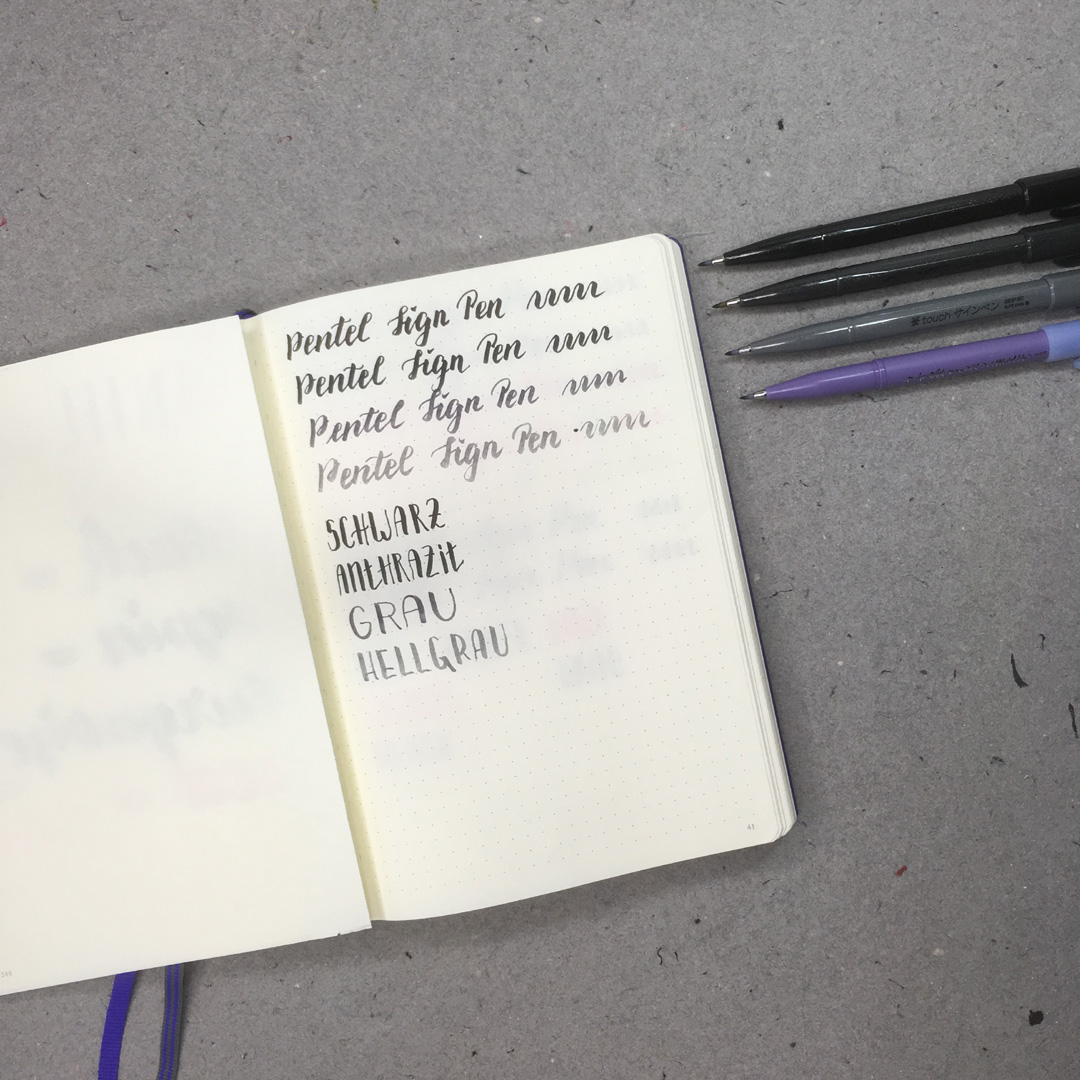 Pentel Sign Pen
Pentel Sign Pen
Pentel Sign Pen
Pentel Sign Pen
SCHWARZ
ANTHRAZit
GRAU
HELLGRAU
41
touch サインペン